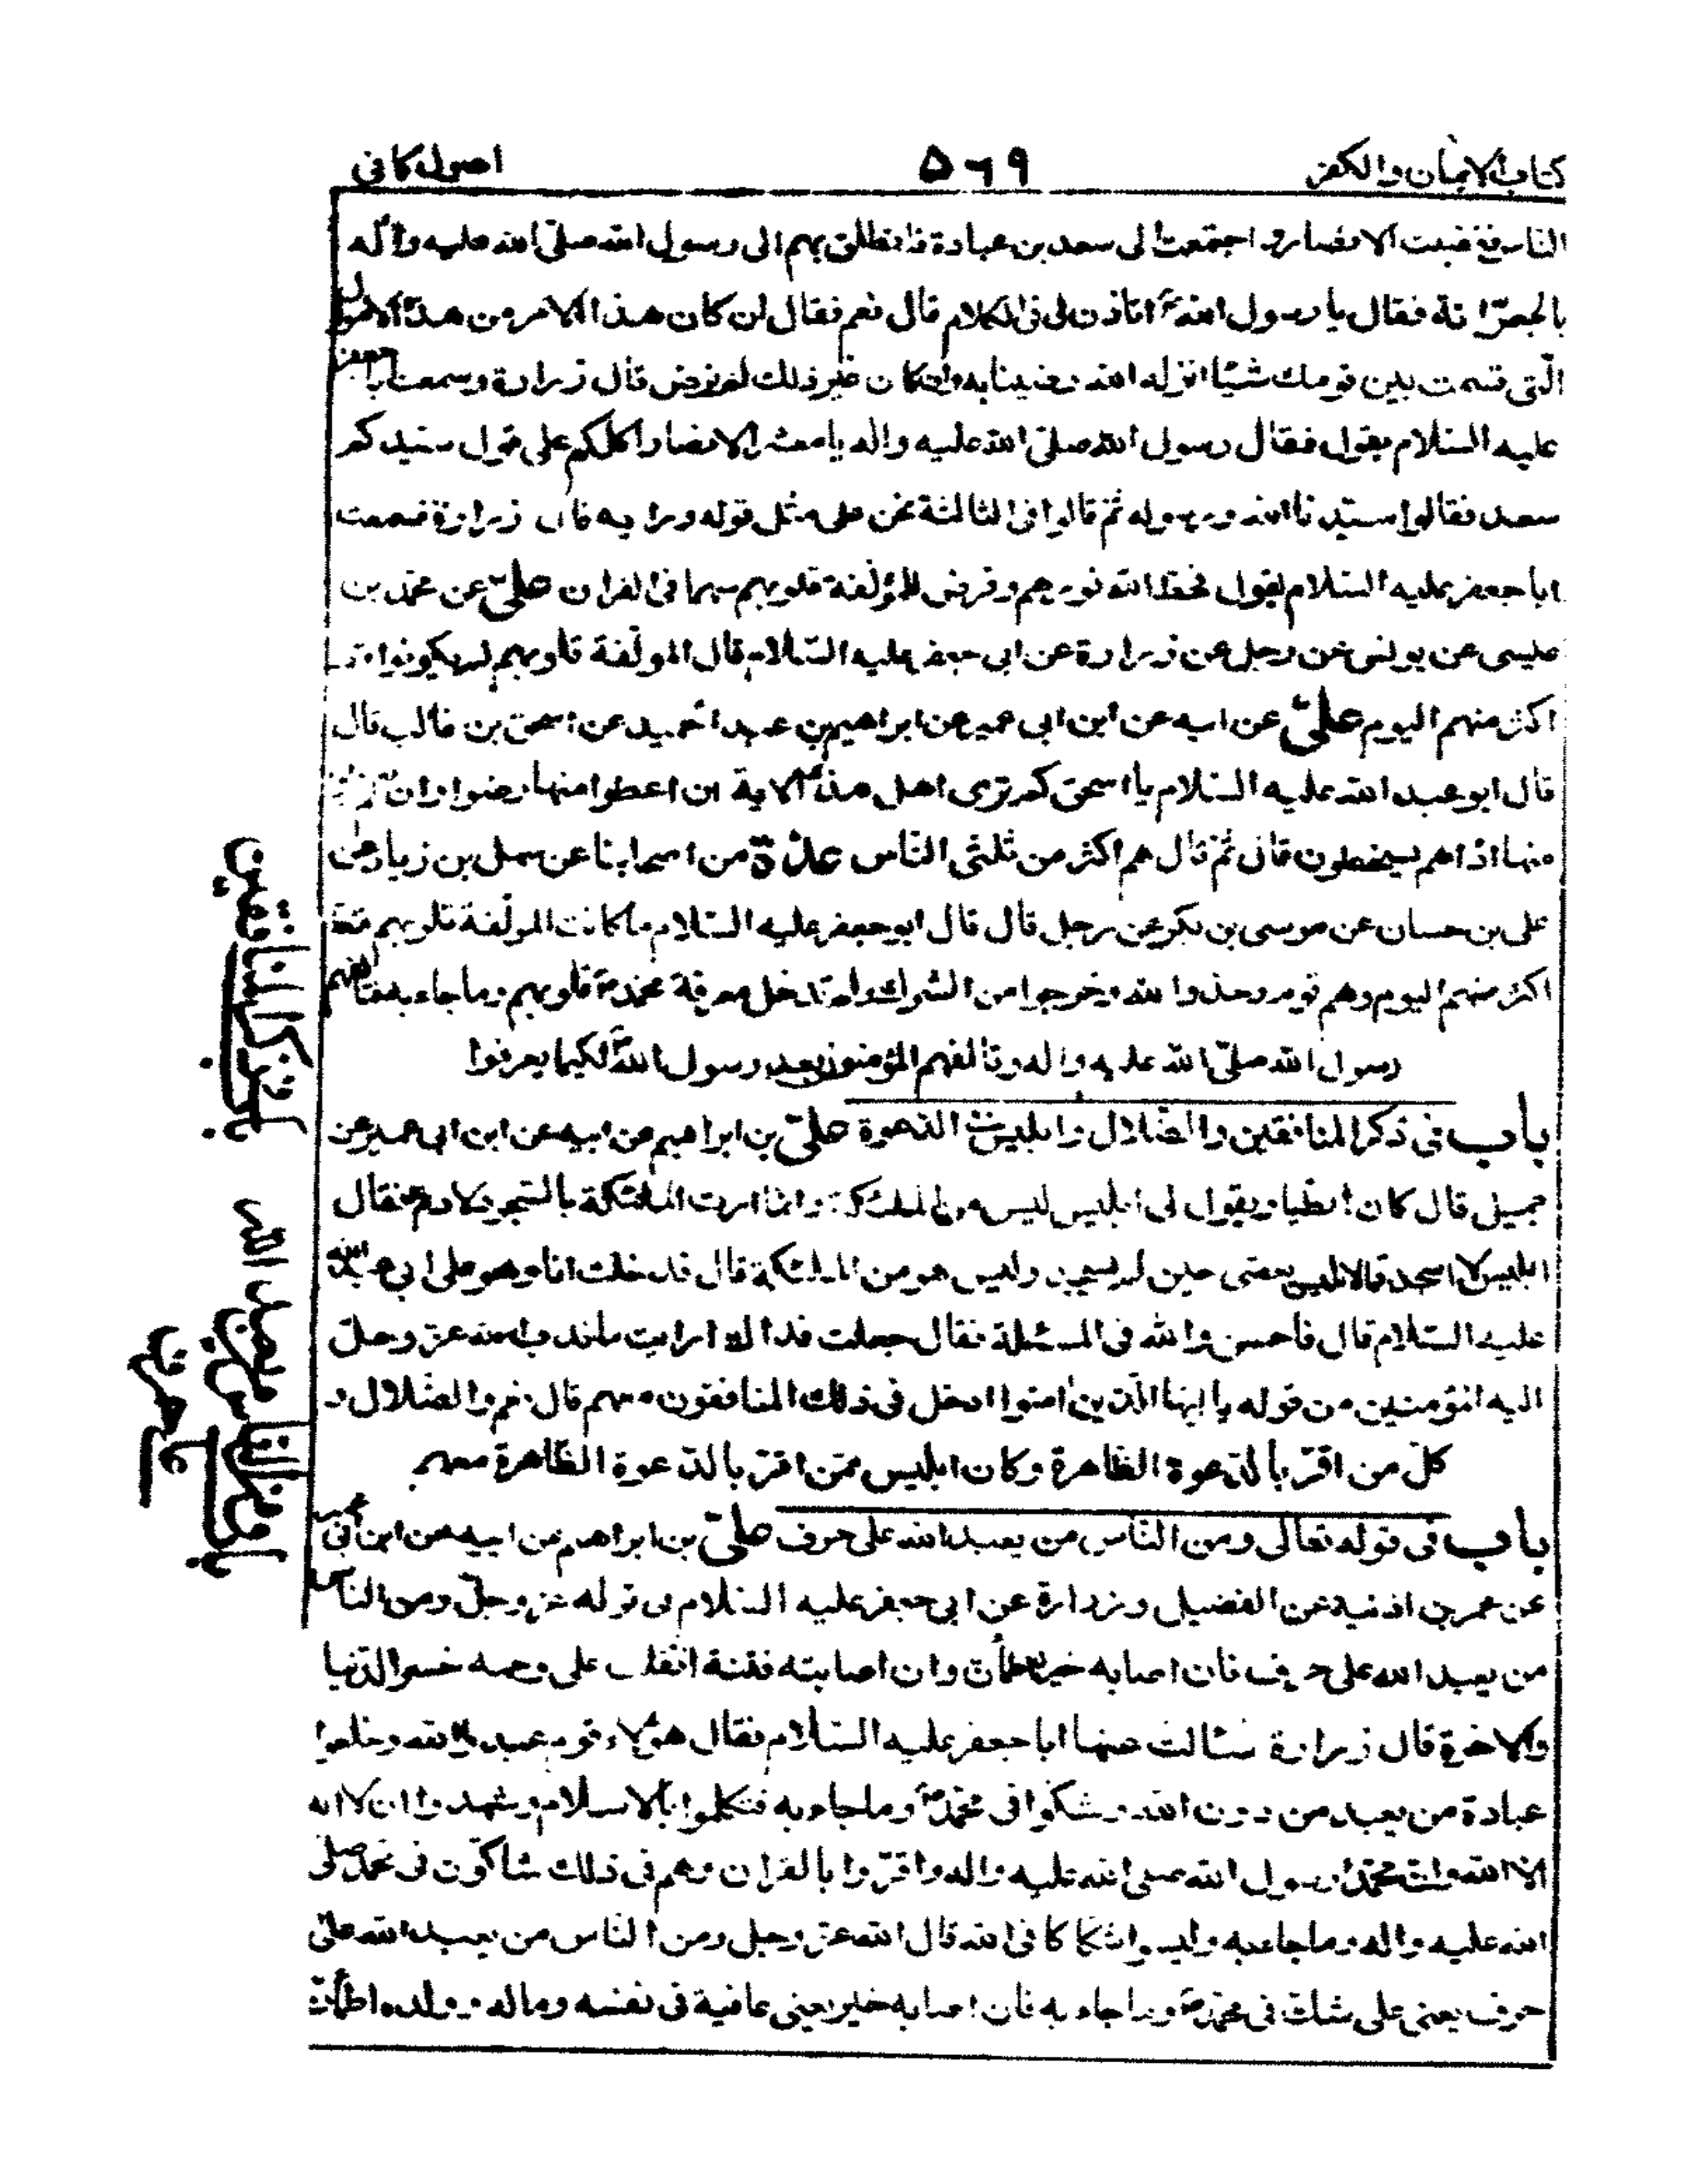 كتاب الايمان والكفر
٥٦٩
اصول كافى
الناس فغضبت الانصار واجتمعت الى سعد بن عبادة فانطلق بهم الى رسول الله صلى الله عليه واله
بالجعرّانة فقال يا رسول الله ص اتاذن لى فى الكلام قال نعم فقال ان كان هذا الامر من هذه الاموال
الّتى قسمت بين قومك شيئا انزله الله رضينا به وان كان غير ذلك لم نرض قال زرارة وسمعت ابا جعفر
عليه السّلام يقول فقال رسول الله صلى الله عليه واله يا معشر الانصار اكلكم على قول سيدكم
سعد فقالوا سيّدنا الله ورسوله ثم قالوا فى الثالثة نحن على مثل قوله ورايه قال زرارة فسمعت
ابا جعفر عليه السّلام يقول فحط الله نورهم وفرض للمؤلّفة قلوبهم سهما فى القران علىّ عن محمّد بن
عيسى عن يونس عن رجل عن زرارة عن ابى جعفر عليه السّلام قال المولّفة قلوبهم لم يكونوا قط
اكثر منهم اليوم علىّ عن ابيه عن ابن ابى عمير عن ابراهيم بن عبد الحميد عن اسحق بن غالب قال
قال ابو عبد الله عليه السّلام يا اسحق كم ترى اهل هذه الاية ان اعطوا منها رضوا وان لم
منها اذا هم يسخطون قال ثم قال هم اكثر من ثلثى الناس عدّة من اصحابنا عن سهل بن زياد عن
على بن حسان عن موسى بن بكر عن رجل قال قال ابو جعفر عليه السّلام ما كانت المولّفة قلوبهم قطّ
اكثر منهم اليوم وهم قوم وحدوا الله وخرجوا من الشرك ولم تدخل معرفة محمّد ص قلوبهم وما جاء به فتالفهم
رسول الله صلّى الله عليه واله وتالفهم المؤمنون بعد رسول الله ص لكيما يعرفوا
باب فى ذكر المنافقين والضّلال وابليس فى الدّعوة علىّ بن ابراهيم عن ابيه عن ابن ابى عمير عن
جميل قال كان الطيار يقول لى ابليس ليس من الملئكة وانما امرت الملئكة بالسّجود لادم ع فقال
ابليس لا اسجد فما لابليس يعصى حين لم يسجد وليس هو من الملئكة قال فدخلت انا وهو على ابى عبد الله
عليه السّلام قال فاحسن والله فى المسئلة فقال جعلت فداك ارايت ما ندب الله عز وجل
اليه المؤمنين من قوله يا ايها الّذين امنوا ادخل فى ذلك المنافقون معهم قال نعم والضّلال و
كلّ من اقرّ بالدّعوة الظاهرة وكان ابليس ممّن اقرّ بالدّعوة الظّاهرة معهم
باب فى قوله تعالى ومن النّاس من يعبد الله على حرف علىّ بن ابراهيم عن ابيه عن ابن ابى عمير
عن عمر بن اذينة عن الفضيل وزرارة عن ابى جعفر عليه السّلام فى قوله عز وجلّ ومن الناس
من يعبد الله على حرف فان اصابه خير اطمأنّ به وان اصابته فتنة انقلب على وجهه خسر الدّنيا
والاخرة قال زرارة سئالت عنها ابا جعفر عليه السّلام فقال هؤلاء قوم عبدوا الله وخلعوا
عبادة من يعبد من دون الله وشكوا فى محمّد ص وما جاء به فتكلموا بالاسلام وشهدوا ان لا اله
الا الله وان محمّدا رسول الله صلى الله عليه واله واقرّوا بالقران وهم فى ذلك شاكّون فى محمّد صلى
الله عليه واله وما جاء به وليسوا شكّاكا فى الله قال الله عزّ وجل ومن الناس من يعبد الله على
حرف يعنى على شك فى محمّد ص وما جاء به فان اصابه خير يعنى عافية فى نفسه وماله وولده اطمأنّ
باب ذكر المنافقين
باب ومن الناس من يعبد الله
على حرف